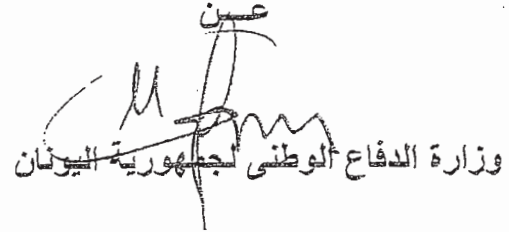 عن
وزارة الدفاع الوطنى لجمهورية اليونان